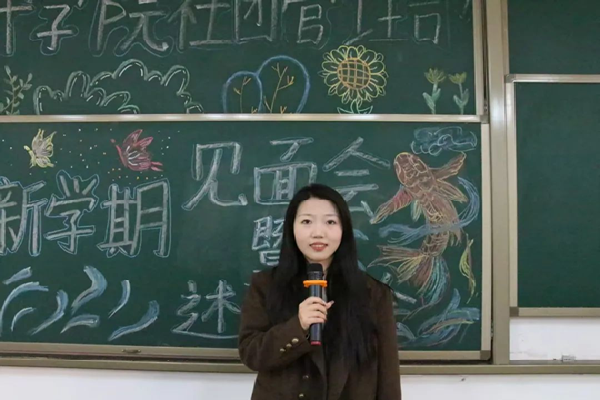 学院社团管理部
新学期 见面会
暨
述